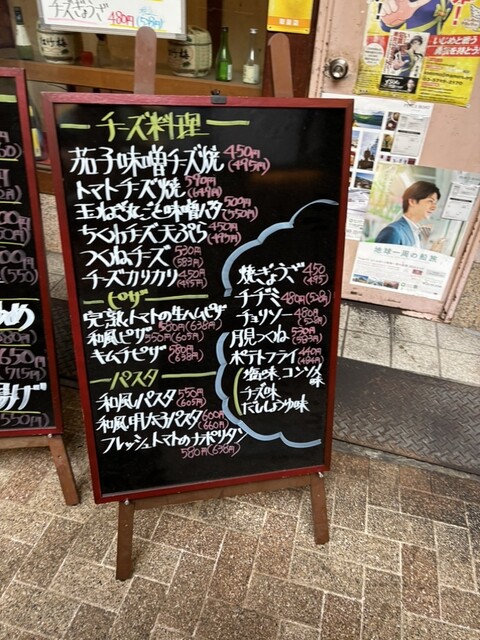 チーズぎょうざ
480円(528円)
チーズ料理
茄子味噌チーズ焼 450円(495円)
トマトチーズ焼 590円(649円)
玉ねぎ丸ごと味噌バター 500円(550円)
ちくわチーズ天ぷら 450円(495円)
つくねチーズ 530円(583円)
チーズカリカリ 450円(495円)
ピザ
完熟トマトの生ハムピザ 580円(638円)
和風ピザ 550円(605円)
キムチピザ 580円(638円)
パスタ
和風パスタ 550円(605円)
和風明太子パスタ 600円(660円)
フレッシュトマトのナポリタン 580円(638円)
焼ぎょうざ 450(495)
チヂミ 480円(528円)
チョリソー 480円(528円)
月見つくね 530円(583円)
ポテトフライ 440円(484円)
塩味 コンソメ味
チーズ味
だししょうゆ味
いじめと闘う
勇気を持とう
地球一周の船旅